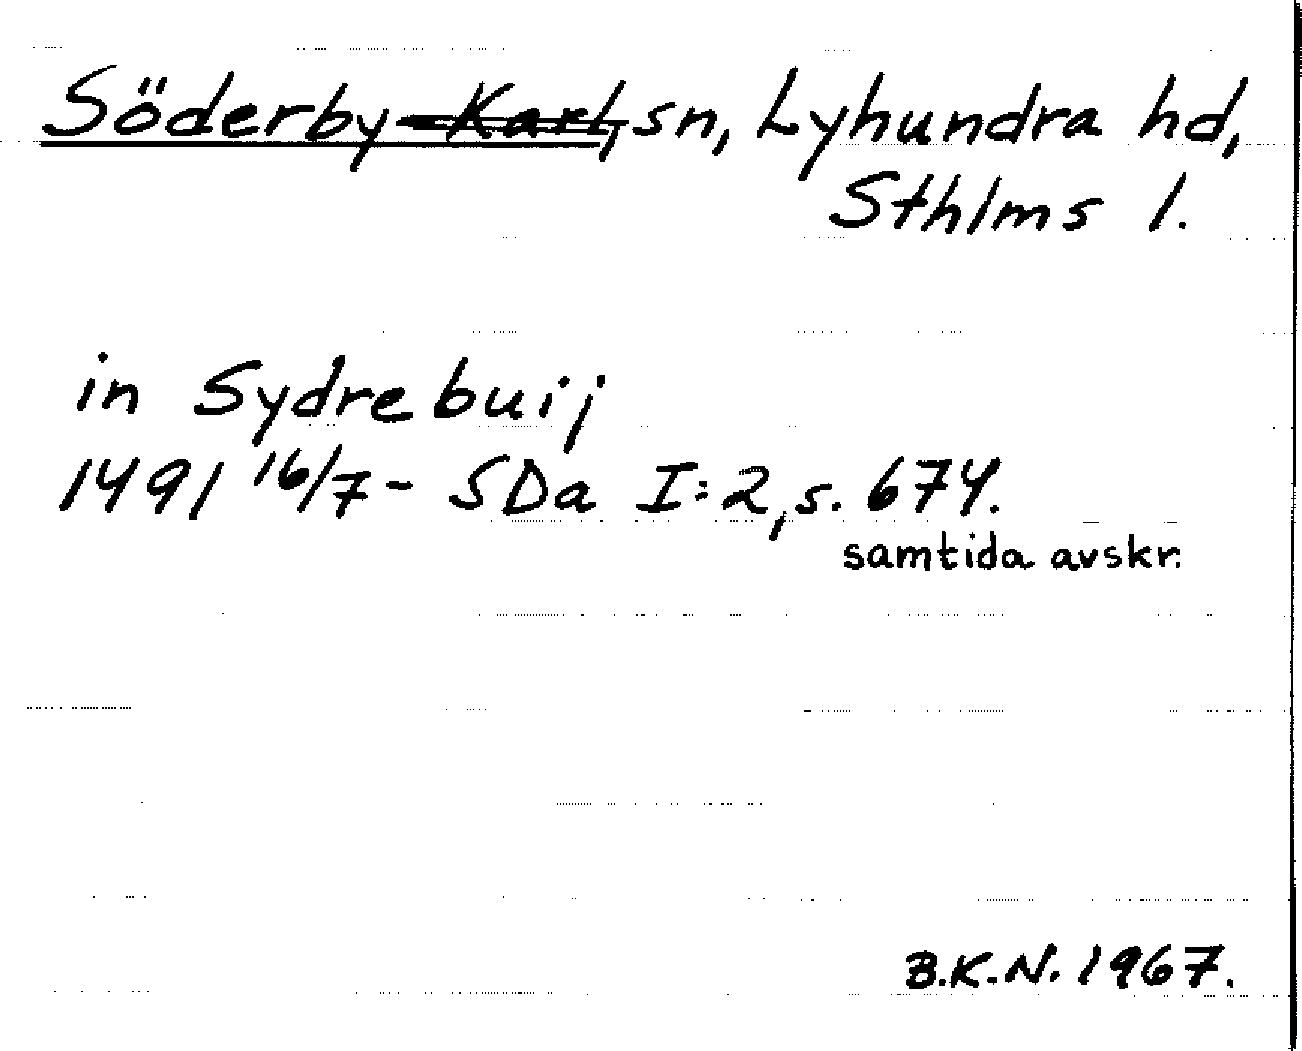 Söderby-Karl, sn, Lyhundra hd,
Sthlms l.
in Sydrebuij
1491 16/7 - SDa I:2, s. 674.
samtida avskr.
B.K.N. 1967.